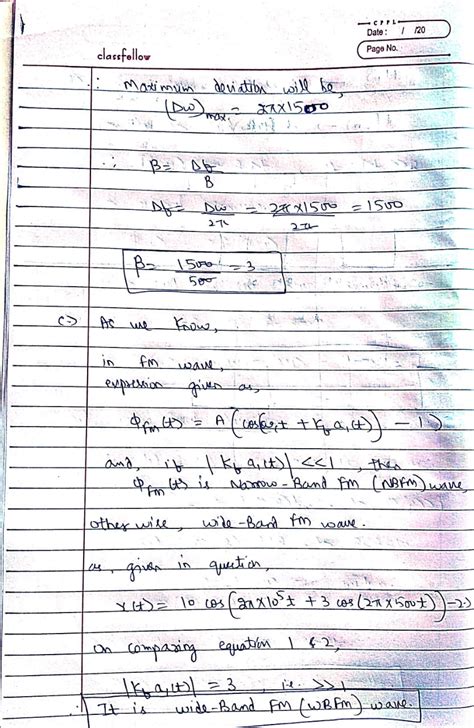 CPPL
Date: / /20
Page No.
classfellow
∴ Maximum deviation will be,
(Δω)max. = 2π×1500
∴ β = Δf/B
Δf = Δω/2π = 2π×1500/2π = 1500
β = 1500/500 = 3
c) As we know,
in fm wave,
expression given as,
Φfm(t) = A(cos(ωct + Kf a1(t)) — 1)
and, if |Kf a1(t)| <<1, then
Φfm(t) is Narrow-Band Fm (NBFM) wave,
other wise, wide-Band fm wave.
as, given in question,
x(t) = 10 cos(2π×10⁵t + 3 cos(2π×500t)) — 2)
on comparing equation 1 & 2,
|Kf a1(t)| = 3, i.e. >>1
∴ It is wide-Band FM (WBFM) wave.